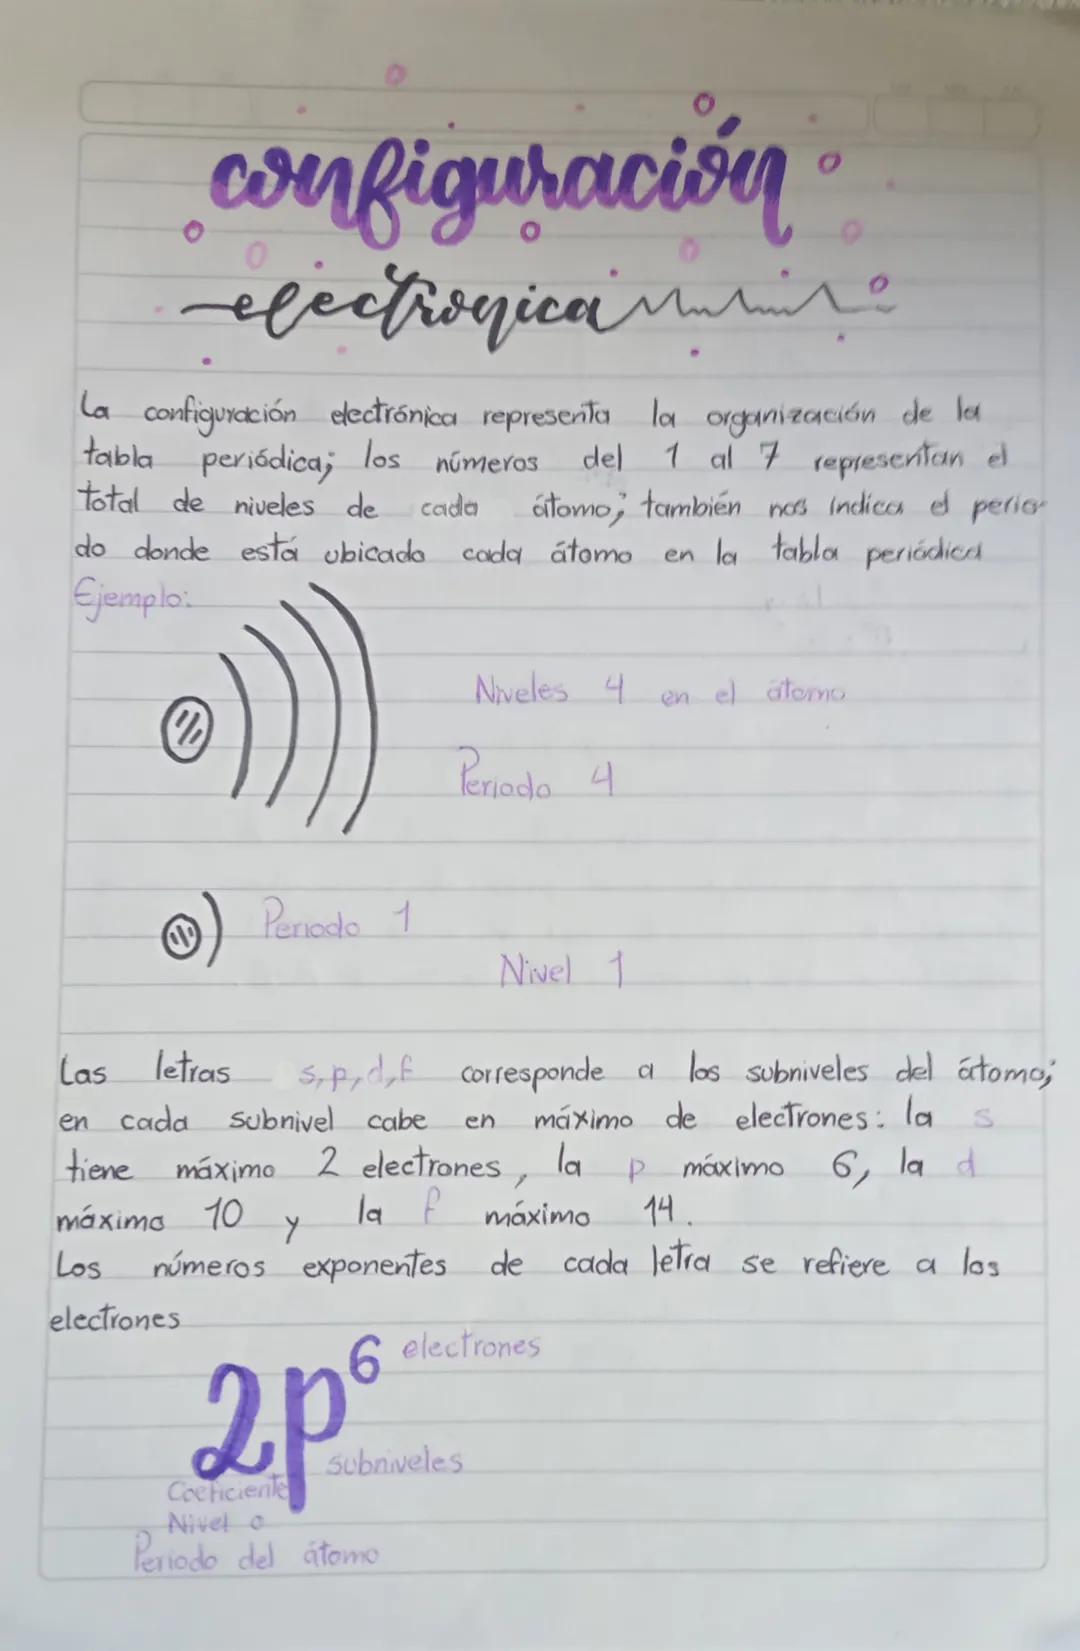 configuración
electronica
La configuración electrónica representa la organización de la
tabla periódica; los números del 1 al 7 representan el
total de niveles de cada átomo; también nos indica el perio-
do donde está ubicado cada átomo en la tabla periódica
Ejemplo:
Niveles 4 en el átomo
Periodo 4
Periodo 1
Nivel 1
Las letras s, p, d, f corresponde a los subniveles del átomo;
en cada subnivel cabe en máximo de electrones: la s
tiene máximo 2 electrones, la p máximo 6, la d
máximo 10 y la f máximo 14.
Los números exponentes de cada letra se refiere a los
electrones
2p⁶ electrones
subniveles
Coeficiente
Nivel o
Periodo del átomo